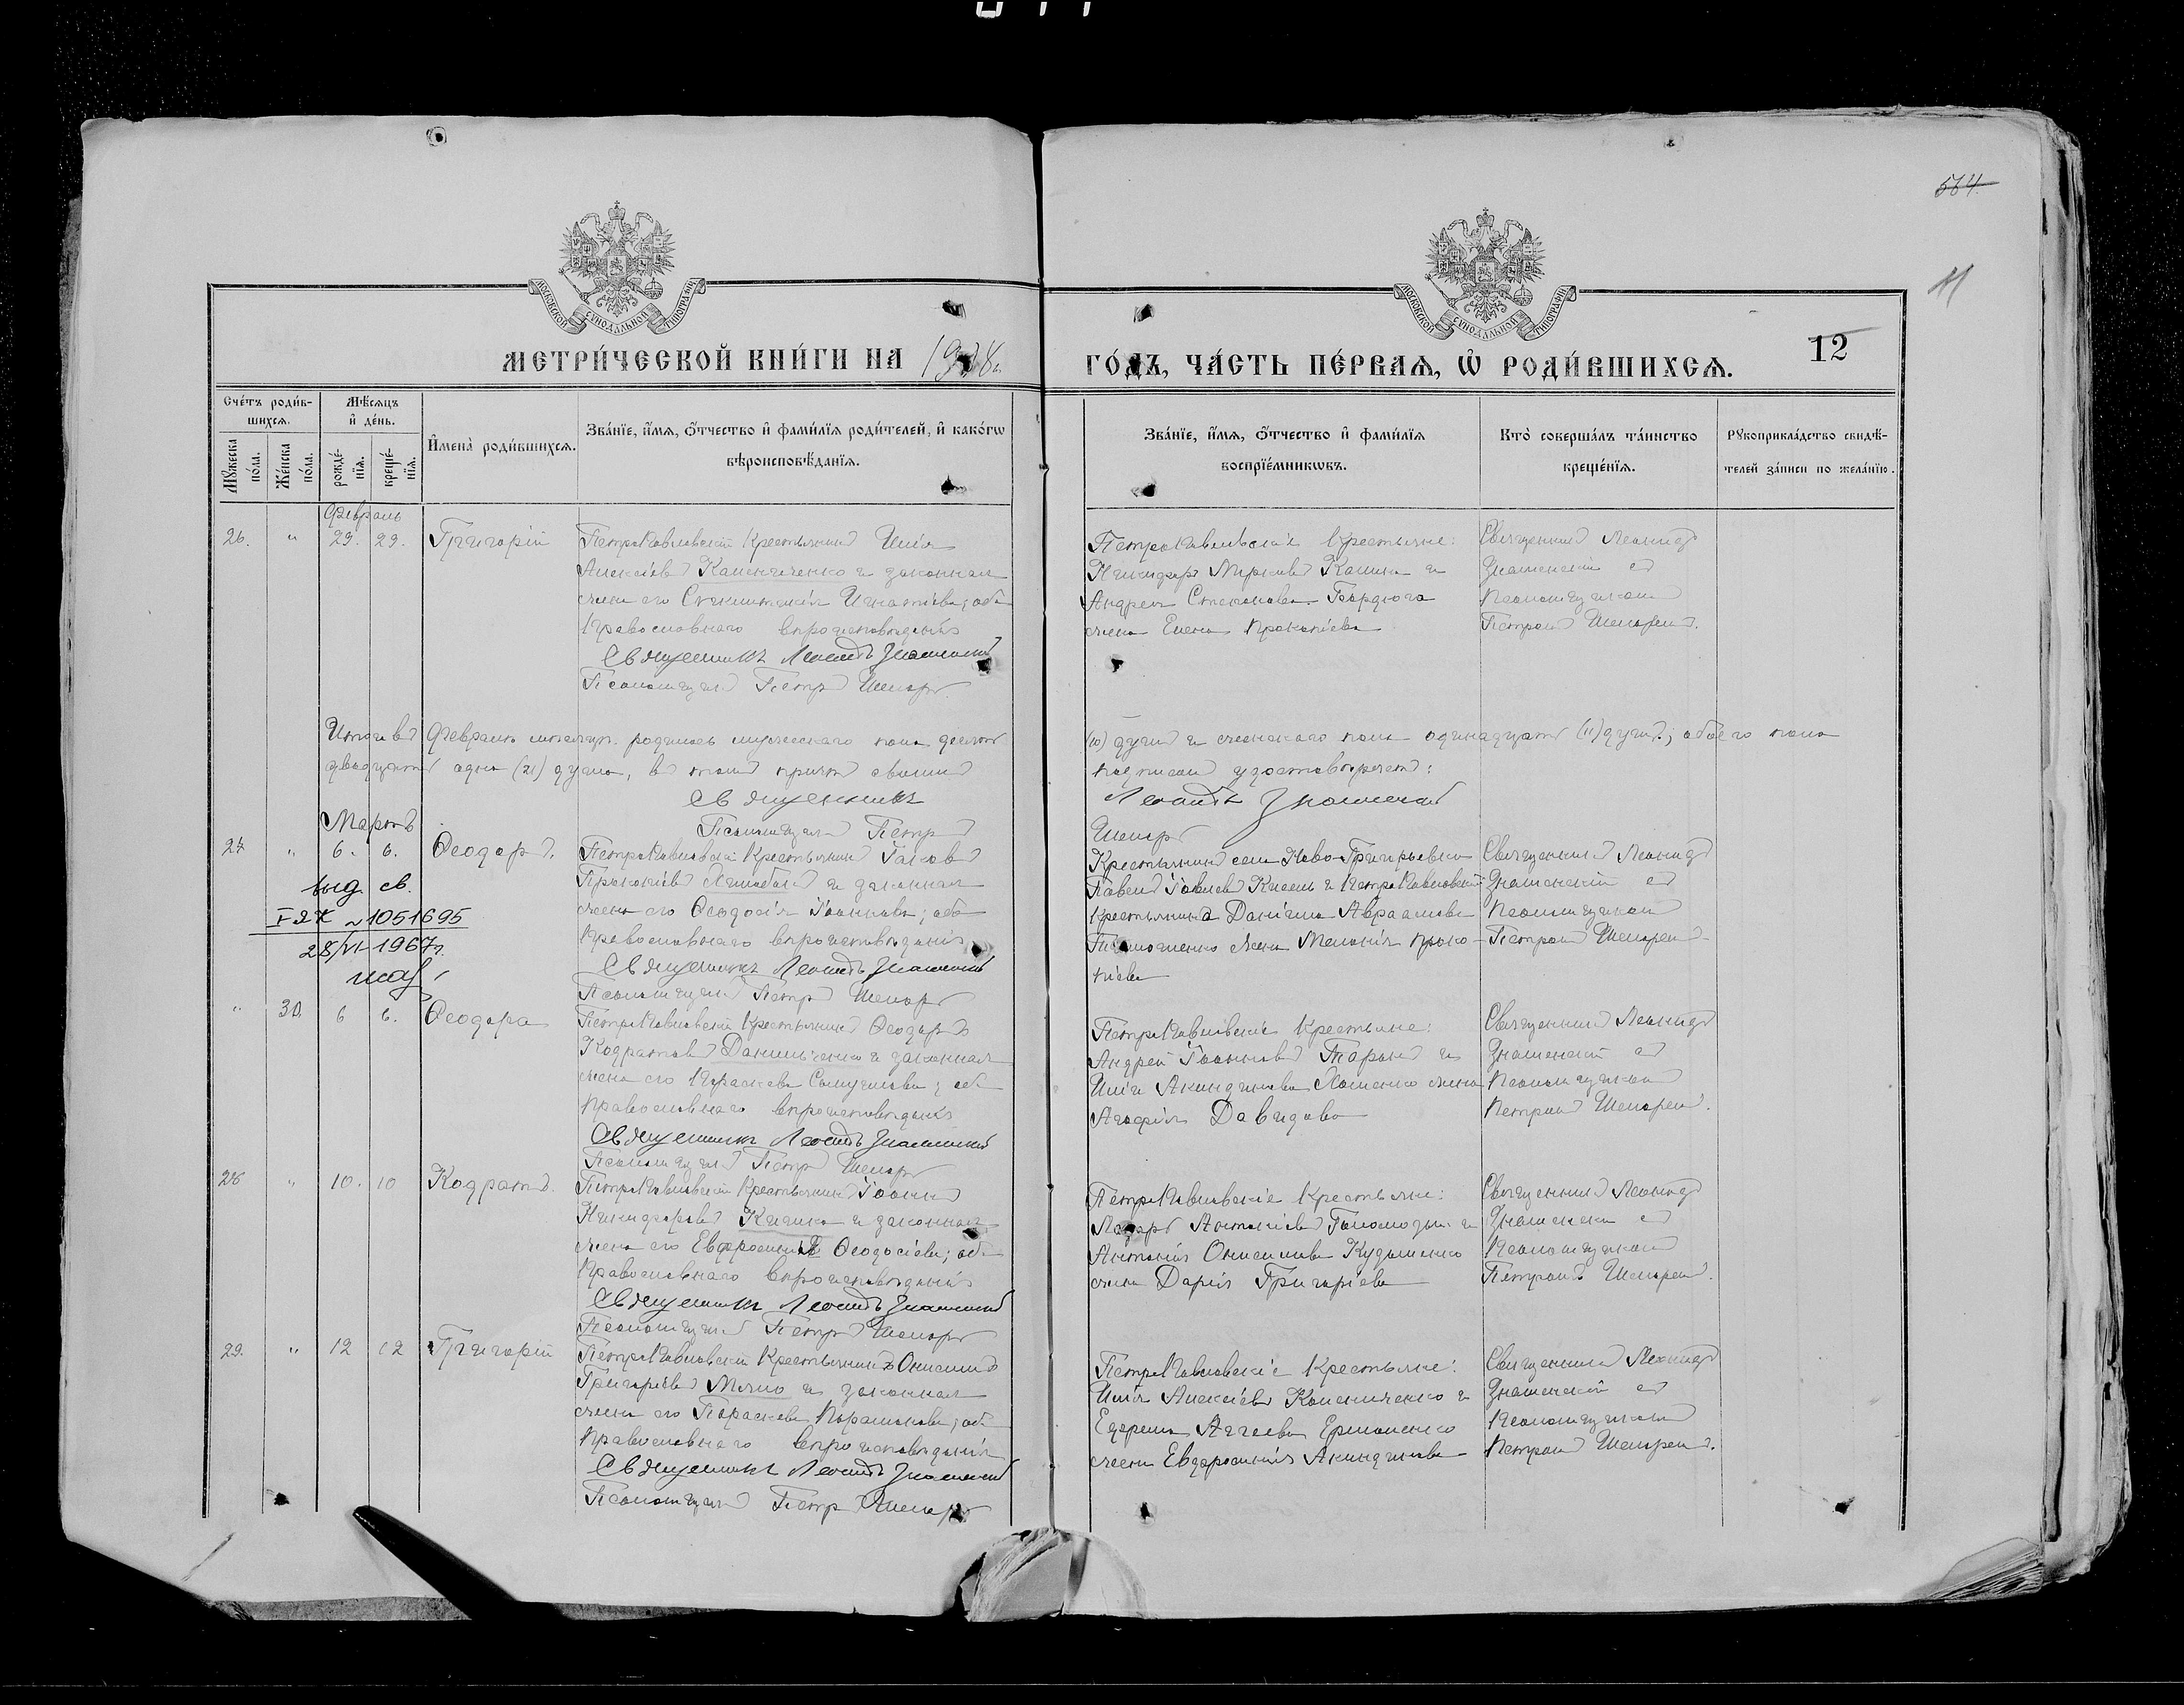 564.
11
МОСКОВСКОЙ СѴНОДАЛЬНОЙ ТИПОГРАФІИ
МОСКОВСКОЙ СѴНОДАЛЬНОЙ ТИПОГРАФІИ
МЕТРИ́ЧЕСКОЙ КНИ́ГИ НА
ГО́ДЪ, ЧА́СТЬ ПЕ́РВАѦ, Ѿ РОДИ́ВШИХСѦ.
12
Сче́тъ роди́в-
шихсѧ.
Мѣ́сѧцъ
и҆ де́нь.
Мꙋ́жеска
по́ла.
Же́нска
по́ла.
рожде́-
нїѧ.
креще́-
нїѧ.
И҆мена̀ роди́вшихсѧ.
Зва́нїе, и҆́мѧ, ѻ҆́тчество и҆ фами́лїѧ роди́телей, и҆ како́гѡ
вѣроисповѣ́данїѧ.
Зва́нїе, и҆́мѧ, ѻ҆́тчество и҆ фами́лїѧ
воспрїе́мникѡвъ.
Кто̀ соверша́лъ та́инство
креще́нїѧ.
Рꙋкоприкла́дство свидѣ́-
телей за́писи по жела́нїю.
Февраль
26. " 29. 29. Григорій
Петропавловскій Крестьянинъ Илія
Алексіевъ и законная
жена его Игнатіева; оба
Православнаго вѣроисповѣданія
Священникъ Леонидъ Знаменскій
Псаломщикъ Петръ
Петропавловскіе крестьяне:
Никифоръ Марковъ и
Андрея Стефанова
жена Елена Прокопіева
Священникъ Леонидъ
Знаменскій съ
Псаломщикомъ
Петромъ
Итого въ Февралѣ мѣсяцѣ родилось мужескаго пола десять
(10) душъ и женскаго пола одинадцать (11) душъ; обоего пола
двадцать одна (21) душа, въ томъ причтъ своимъ
подписомъ удостовѣряетъ:
Священникъ
Леонидъ Знаменскій
Псаломщикъ Петръ
Мартъ
27 " 6. 6. Ѳеодоръ.
выд. св.
I-2К №1051695
28/VI-1967г.
Петропавловскій Крестьянинъ Іаковъ
Прокопіевъ и законная
жена его Ѳеодосія Іоаннова; оба
Православнаго вѣроисповѣданія
Священникъ Леонидъ Знаменскій
Псаломщикъ Петръ
Крестьянинъ села Ново-Григорьевки
Павелъ Іовлевъ Кисель и Петропавловскій
крестьянина Даніила Авраамова
жена Меланія Проко-
піева
Священникъ Леонидъ
Знаменскій съ
Псаломщикомъ
Петромъ
" 30. 6 6. Ѳеодора
Петропавловскій Крестьянинъ Ѳеодоръ
Кодратовъ Данильченко и законная
жена его Параскева Самуилова; оба
Православнаго вѣроисповѣданія
Священникъ Леонидъ Знаменскій
Псаломщикъ Петръ
Петропавловскіе Крестьяне:
Андрей Іоанновъ Таранъ и
Иліи Акиндинова жена
Агафія Давидова
Священникъ Леонидъ
Знаменскій съ
Псаломщикомъ
Петромъ
28 " 10. 10 Кодратъ.
Петропавловскій Крестьянинъ Іоаннъ
Никифоровъ и законная
жена его Евфросинія Ѳеодосіева; оба
Православнаго вѣроисповѣданія
Священникъ Леонидъ Знаменскій
Псаломщикъ Петръ
Петропавловскіе Крестьяне:
Лазарь Антоніевъ и
Антонія Онисимова
жена Дарія Григоріева
Священникъ Леонидъ
Знаменскій съ
Псаломщикомъ
Петромъ
29. " 12 12 Григорій
Петропавловскій Крестьянинъ Онисимъ
Григоріевъ и законная
жена его Параскева Парамонова; оба
Православнаго вѣроисповѣданія
Священникъ Леонидъ Знаменскій
Псаломщикъ Петръ
Петропавловскіе Крестьяне:
Илія Алексіевъ и
Ефрема Аггеева Ермоленко
жена Евфросинія Акиндинова
Священникъ Леонидъ
Знаменскій съ
Псаломщикомъ
Петромъ